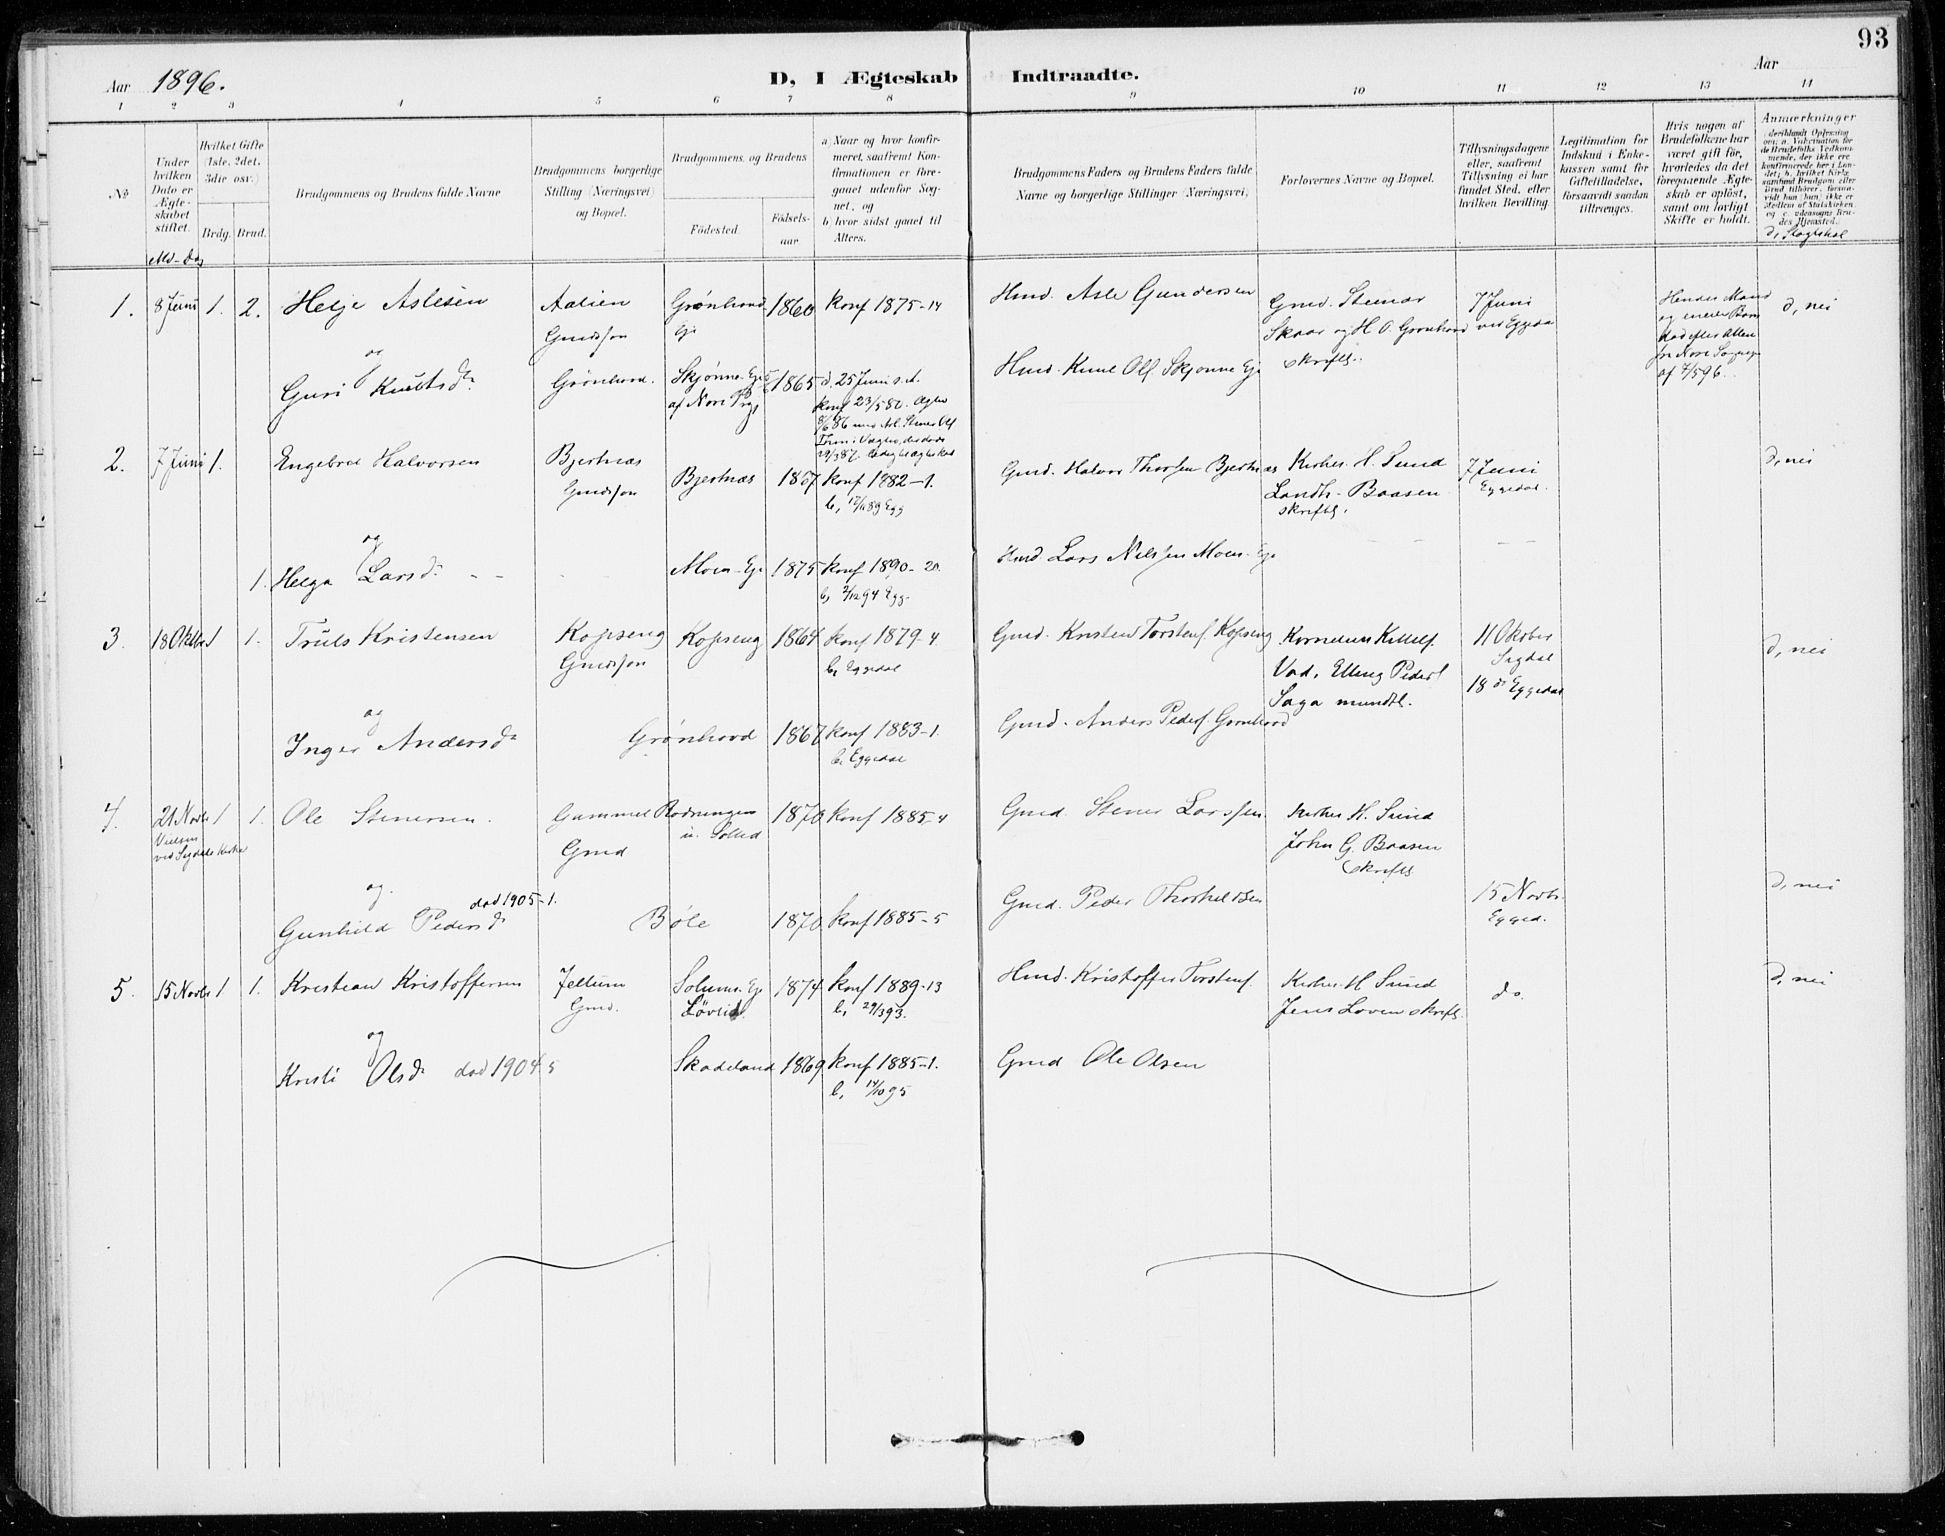 93
Aar 1896.
D, I Ægteskab Indtraadte.
Aar
1 2 3 4 5 6 7 8 9 10 11 12 13 14
No
Under hvilken Dato er Ægteskabet stiftet.
Md - Dag
Hvilket Gifte (1ste, 2det, 3die osv.)
Brdg. Brud.
Brudgommens og Brudens fulde Navne
Brudgommens borgerlige Stilling (Næringsvei) og Bopæl.
Brudgommens og Brudens
Födested.
Födsels-aar
a) Naar og hvor konfirmeret, saafremt Konfirmationen er foregaaet udenfor Sognet, og
b) hvor sidst gaaet til Alters.
Brudgommens Faders og Brudens Faders fulde Navne og borgerlige Stillinger (Næringsvei)
Forlovernes Navne og Bopæl.
Tillysningsdagene eller, saafremt Tillysning ei har fundet Sted, efter hvilken Bevilling.
Legitimation for Indskud i Enkekassen samt for Giftetilladelse, forsaavidt saadan tiltrænges.
Hvis nogen af Brudefolkene har været gift för, hvorledes da det foregaaende Ægteskab er oplöst, samt om lovligt Skifte er holdt.
Anmærkninger
d, Slægtskab
1. 8 Juni 1. 2. Helje Aslesen
Aalien Gmdssøn
Grønhovd Eje 1860 konf 1875-14
Hmd. Asle Gundersen
Gmd. Steinar Skaar og H. O. Grønhovd skriftl.
7 Juni ved Eggedal
d, nei
og
Guri Knutsdr
Grønhovd.
Skjønne Eje af Nore Prgj 1865
d. 25 Juni s. A.
Hmd. Knut Ols. Skjønne Eje
af 4/5 96.
2. 7 Juni 1. Engebret Halvorsen
Bjertnæs Gmdssøn
Bjertnæs 1867 konf 1882-1.
b, 17/11 89 Egg
Gmd. Halvor Thorsen Bjertnæs
Kirkes. H. Sund
Landh. Baasen skriftl.
7 Juni Eggedal.
d, nei
og
1. Helga Larsd. - -
Moen Eje 1875 konf 1890-20.
b, 2/12 94 Egg.
Hmd Lars Nilssen Moen Eje
3. 18 Oktber 1 1. Truls Kristensen
Kopseng Gmdssøn
Kopseng 1864 konf 1879-4.
b, Eggedal
Gmd. Kristen Torstens. Kopseng
Kornelius Kittels. Vad, Elling Peders. Saga mundtl.
11 Oktober Sigdal
18 do Eggedal
d, nei
og
Inger Andersdr
Grønhovd 1867 konf 1883-1.
b, Eggedal
Gmd. Anders Peders. Grønhovd
4. 21 Novbr 1 1. Ole Stenersen.
Vielsen ved Sigdals Kirke
Gammel Rodningen u. Sollid
Gmd
1870 konf 1885-4
Gmd. Stener Larssen.
Kirkes H. Sund
John G. Baasen skriftl
og
død 1905-1.
Gunhild Pedersdr
Bøle 1870 konf 1885-5
Gmd. Peder Thorkeldsen
15 Novbr Egged.
d, nei
5. 15 Novbr 1 1. Kristian Kristoffersen
Jellum Gmd.
Solums. Eje Løvlid. 1874 konf 1889-13
b, 29/3 93.
Hmd. Kristoffer Torstens.
Kirkes. H Sund
Jens Loven skriftl.
do.
d, nei
og
Kristi Olsdr død 1904.5
Skadeland 1869 konf 1885-1.
b, 14/10 95
Gmd Ole Olsen